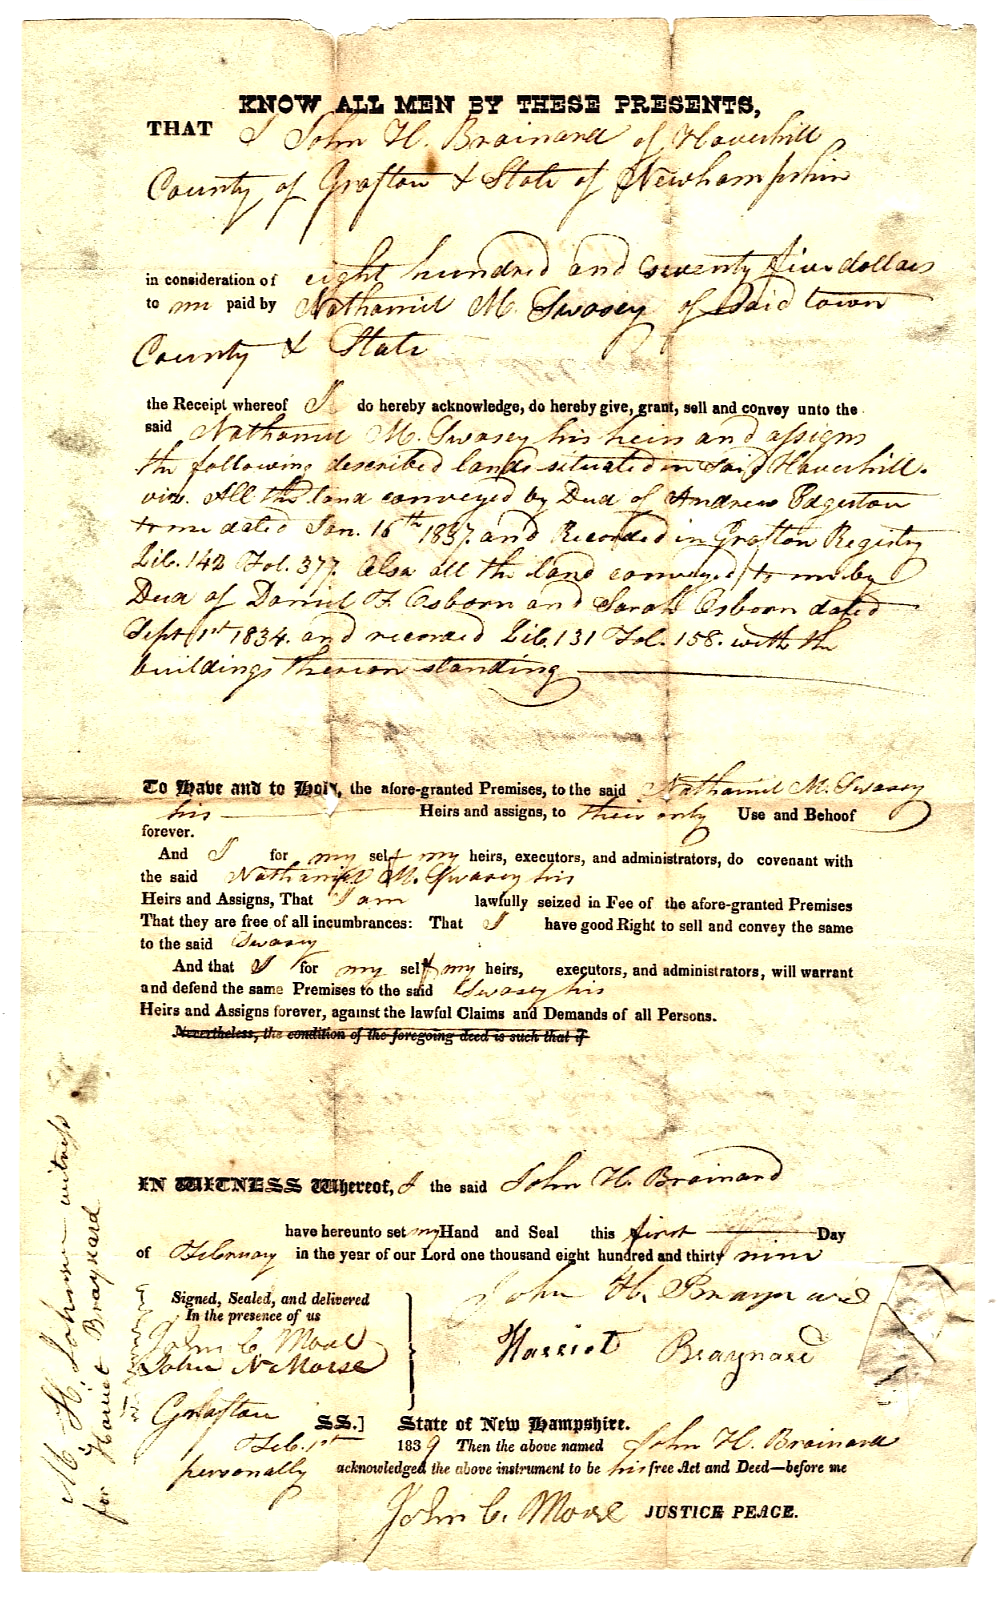 KNOW ALL MEN BY THESE PRESENTS,
THAT I John H. Brainard of Haverhill
County of Grafton & State of Newhampshire
in consideration of eight hundred and seventy five dollars
to me paid by Nathaniel M. Swasey of Said town
County & State
the Receipt whereof I do hereby acknowledge, do hereby give, grant, sell and convey unto the
said Nathaniel M. Swasey his heirs and assigns
the following described lands situated in said Haverhill.
viz. All the land conveyed by Deed of Andrew Edgerton
to me dated Jan. 16th 1837. and Recorded in Grafton Registry
Lib. 142 Fol. 377. Also all the land conveyed to me by
Deed of Daniel F. Osborn and Sarah Osborn dated
Sept 1st 1834. and recorded Lib. 131 Fol. 158. with the
buildings thereon standing
To Have and to Hold, the afore-granted Premises, to the said Nathaniel M. Swasey
his Heirs and assigns, to their only Use and Behoof
forever.
And I for my self my heirs, executors, and administrators, do covenant with
the said Nathaniel M. Swasey his
Heirs and Assigns, That I am lawfully seized in Fee of the afore-granted Premises
That they are free of all incumbrances: That I have good Right to sell and convey the same
to the said Swasey
And that I for my self my heirs, executors, and administrators, will warrant
and defend the same Premises to the said Swasey his
Heirs and Assigns forever, against the lawful Claims and Demands of all Persons.
Nevertheless, the condition of the foregoing deed is such that if
IN WITNESS Whereof, I the said John H. Brainard
have hereunto set my Hand and Seal this first Day
of February in the year of our Lord one thousand eight hundred and thirty nine
Signed, Sealed, and delivered
In the presence of us
John H. Braynard
John C. Moore
John N Morse
Harriot Braynard
Grafton SS.] State of New Hampshire.
Feb. 1st 1839 Then the above named John H. Brainard
personally acknowledged the above instrument to be his free Act and Deed—before me
John C. Moore JUSTICE PEACE.
M. H. Johnson witness
for Harriet Braynard